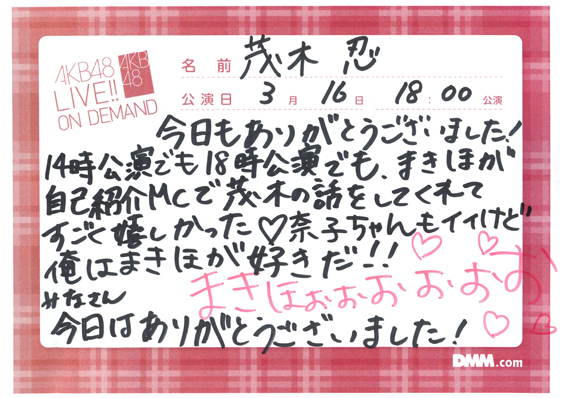 AKB48
LIVE!!
ON DEMAND
AKB
48
名前 茂木 忍
公演日 3月 16日 18:00 公演
今日もありがとうございました!
14時公演でも18時公演でも、まきほが
自己紹介MCで茂木の話をしてくれて
すごく嬉しかった♡奈子ちゃんもイイけど
俺はまきほが好きだ!!
まきほぉぉぉぉぉぉ
みなさん
今日はありがとうございました!
DMM.com